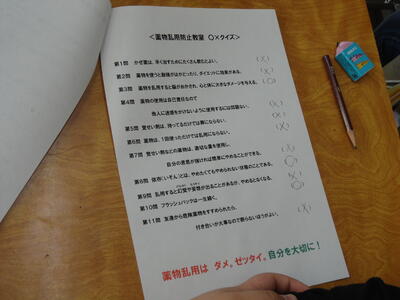 <薬物乱用防止教室 〇×クイズ>
第1問 かぜ薬は、早く治すためにたくさん飲むとよい。 (×)
第2問 薬物を使うと脂肪がはがどったり、ダイエットに効果がある。 (×)
第3問 薬物を乱用すると脳がおかされ、心と体に大きなダメージを与える。 (〇)
第4問 薬物の使用は自己責任なので
他人に迷惑をかけないように使用するには問題ない。 (×)
第5問 覚せい剤は、持ってるだけでは罪にならない。 (×)
第6問 薬物は、1回使っただけでは乱用にならない。 (×)
第7問 覚せい剤などの薬物は、適切な量を使用し、
自分の意思が強ければ簡単にやめることができる。 (×)
第8問 依存(いぞん)とは、やめたくてもやめられない状態のことである。 (〇)
第9問 乱用すると幻覚や妄想が出ることがあるが、やめるとなくなる。 (×)
第10問 フラッシュバックは一生続く。 (〇)
第11問 友達から危険薬物をすすめられたら、
付き合いが大事なので断らないほうがよい。 (×)
薬物乱用は ダメ。ゼッタイ。自分を大切に!